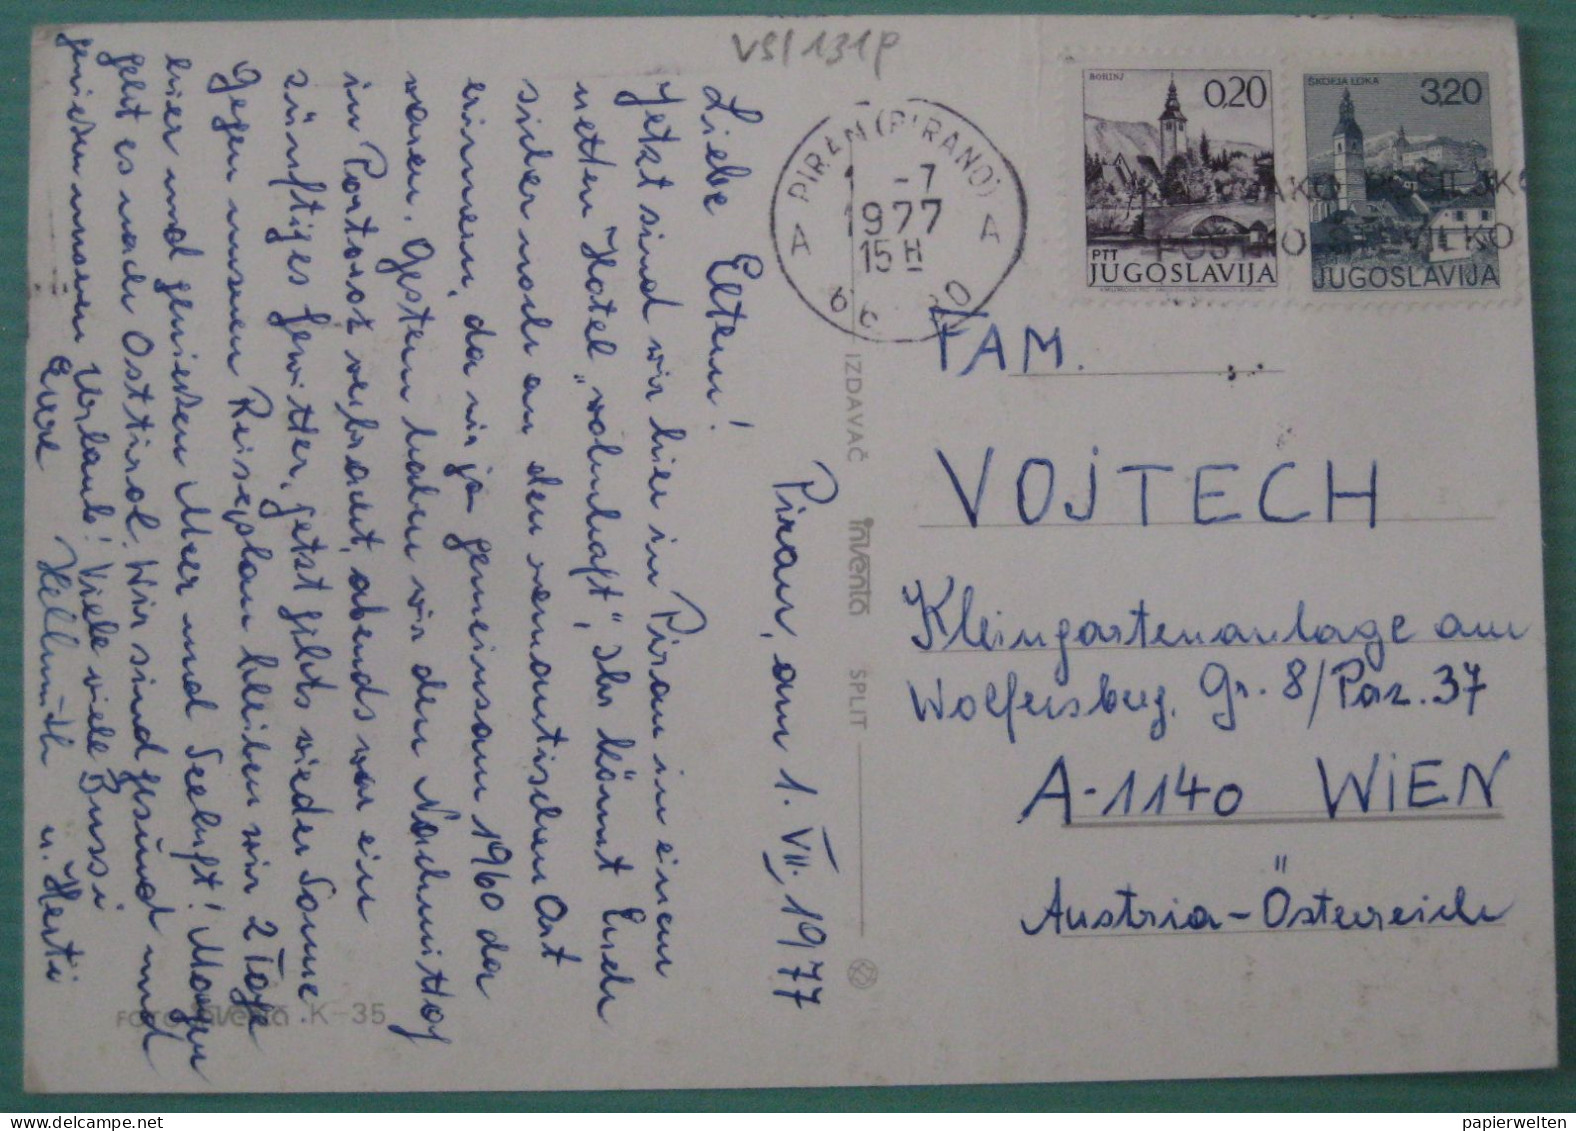 VS/131p
Piran, am 1. VII. 1977
Liebe Eltern!
Jetzt sind wir hier in Piran in einem
netten Hotel „wohnhaft“, Ihr könnt Euch
sicher noch an den romantischen Ort
erinnern, da wir ja gemeinsam 1960 da
waren. Gestern haben wir den Nachmittag
in Portoroz verbracht, abends war ein
zünftiges Gewitter, jetzt gibts wieder Sonne
Gegen unseren Reiseplan bleiben wir 2 Tage
hier und genießen Meer und Seeluft! Morgen
geht es nach Osttirol. Wir sind gesund und
genießen unseren Urlaub! Viele viele Bussi
Eure Hellmuth u. Herti
FOTO inventa K-35
IZDAVAČ inventa SPLIT
PIRAN (PIRANO)
-7
1977
15H
A A
BOHINJ
0,20
PTT
JUGOSLAVIJA
ŠKOFJA LOKA
3,20
JUGOSLAVIJA
FAM.
VOJTECH
Kleingartenanlage am
Wolfersberg, Gr. 8/Paz. 37
A-1140 WIEN
Austria-Österreich
papierwelten